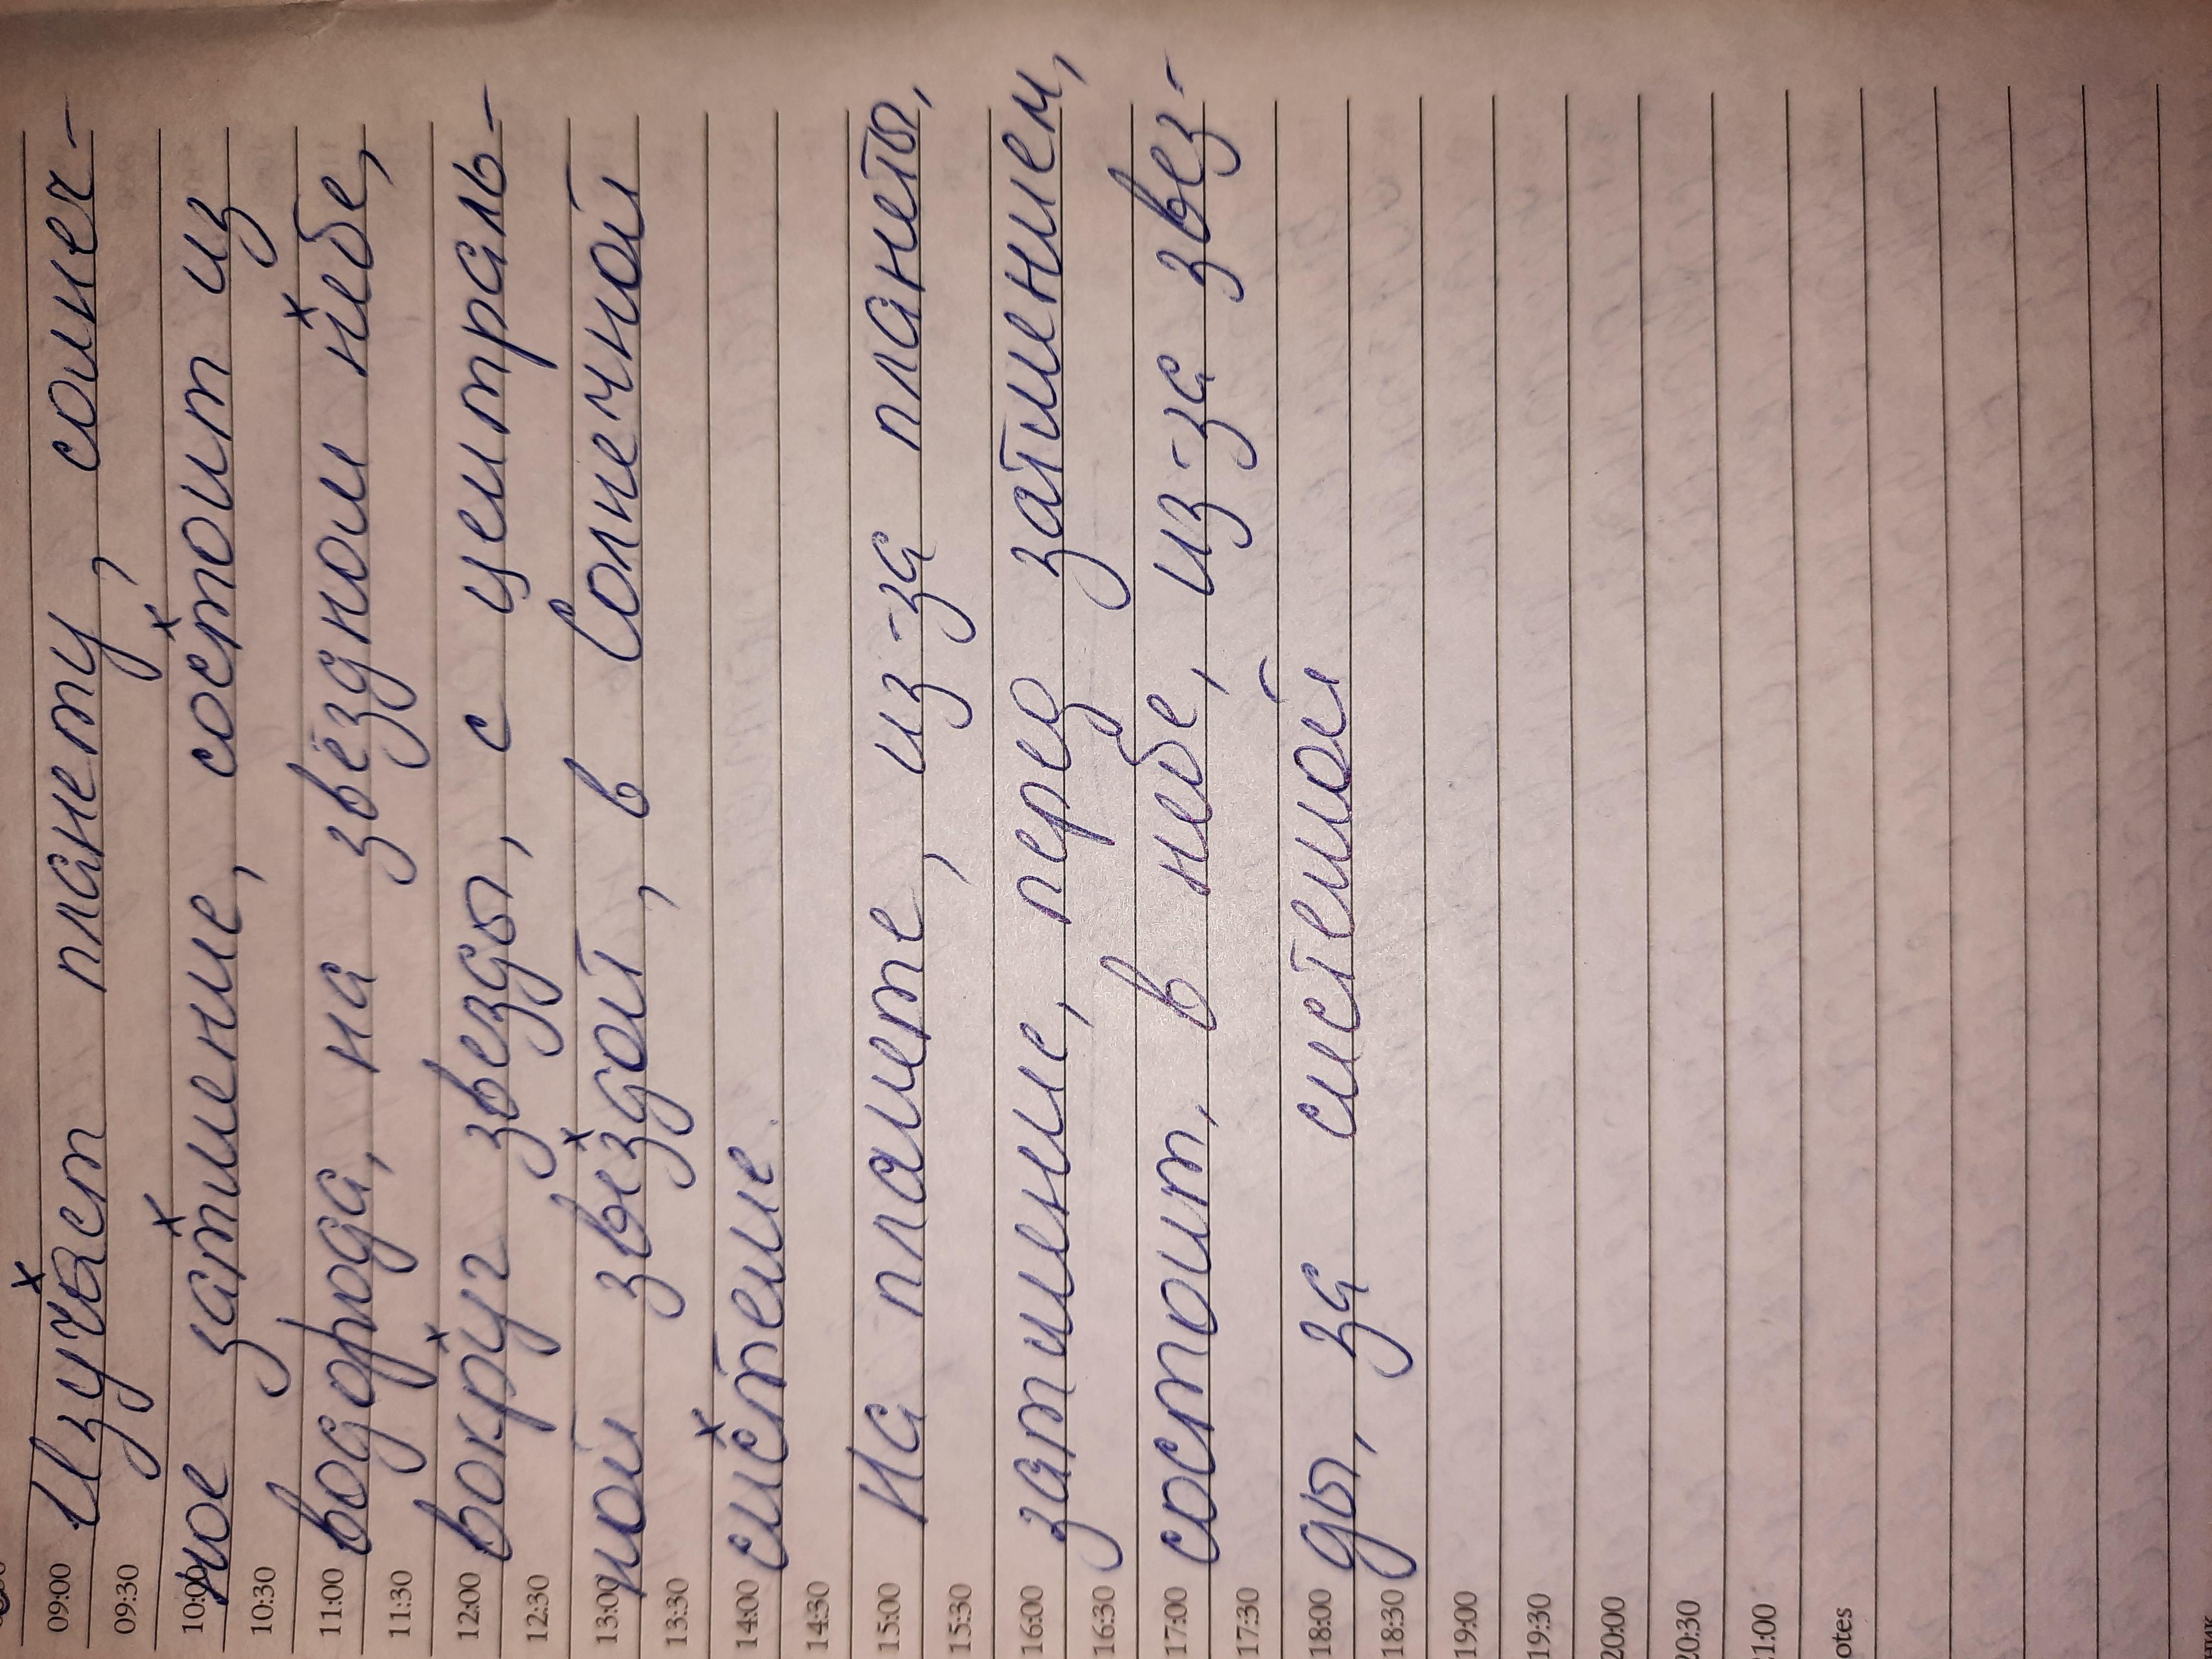 09:00 Изучает планету, солнеч-
09:30
10:00 ное затмение, состоит из
10:30
11:00 водорода, на звёздном небе,
11:30
12:00 вокруг звезды, с централь-
12:30
13:00 ной звёздой, в Солнечной
13:30
14:00 системе.
14:30
15:00 На планете, из-за планеты,
15:30
16:00 затмение, перед затмением,
16:30
17:00 состоит, в небе, из-за звез-
17:30
18:00 ды, за системой
18:30
19:00
19:30
20:00
20:30
21:00
otes